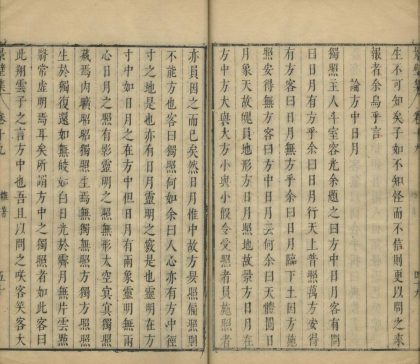 生不可知矣子如不知怪而不信則更以問之來
報者余烏乎言
論方中日月
獨照主人斗室客光余題之曰方中日月客有問
曰日月有方乎余曰日月行天上普照萬方安得
有方客曰日月方乎余曰日月臨下土因方在
照安得無方客曰方中日月云何余曰天體圓日
月象天故員地形方日月照地故景方日月在
方中方大與大方小與小假令受照者員施照者
亦員因之而已矣然日月惟中故方照獨照
不能方也客曰獨照何如余曰人心亦有方中徑
寸之地是也亦有日月靈明之竅是也靈明在方
寸中如日月之在方中但日月有兩象靈明無兩
心日月之照有影靈明之照無形太空寞寞獨照
藏焉內職昭昭獨照生焉無獨無照方獨方照照
生於獨復還如無皎如白日光於霽月無片雲點
將常虛明焉耳矣所謂方中之獨照者如此客曰
此朔雲子之言方中也吾且以問之咲客笑客大
卷十九
雜著
五十